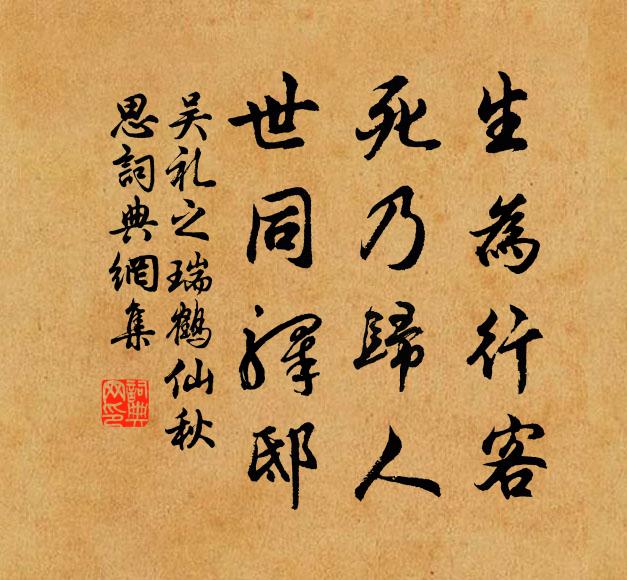 生為行客
死乃歸人
世同驛邸
吴礼之瑞鶴仙秋
思詞典網集
詞典
网印